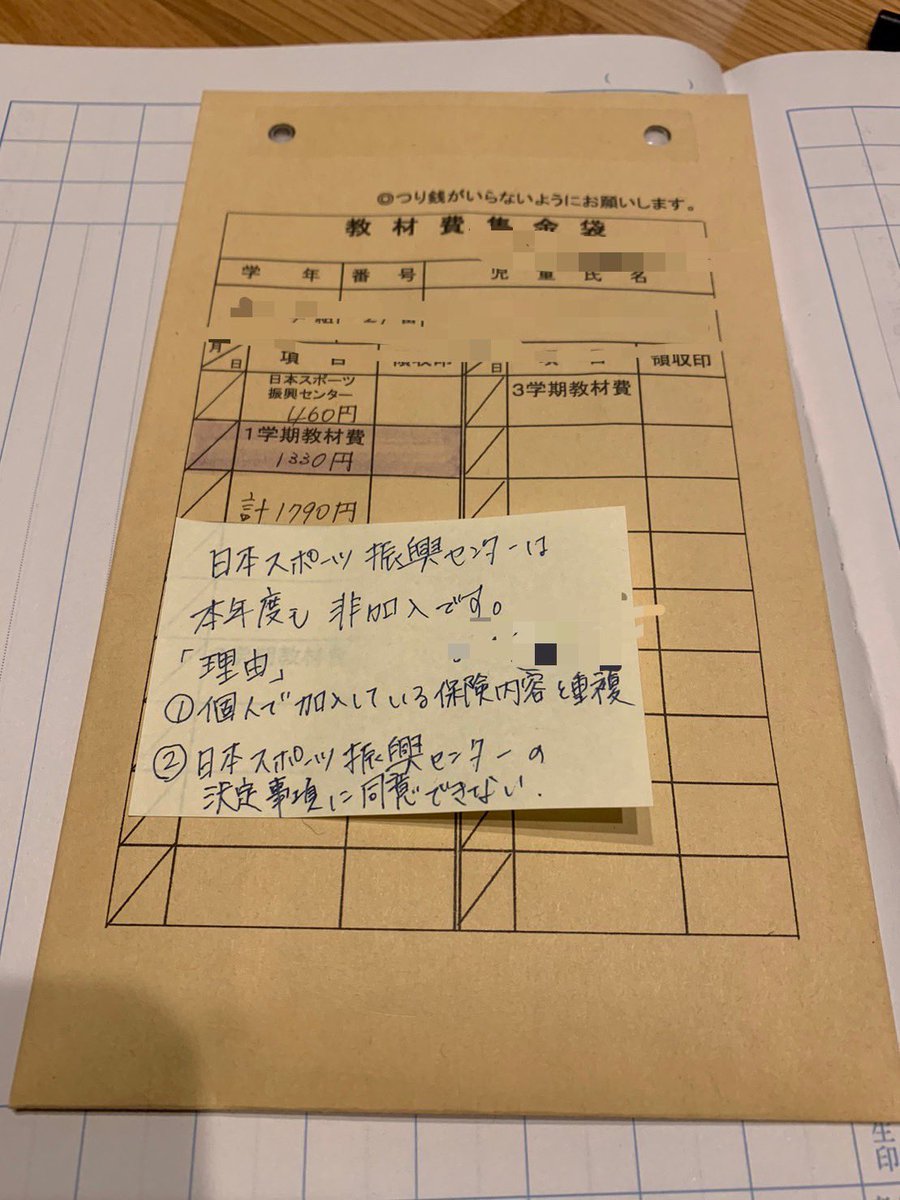 ◎つり銭がいらないようにお願いします。
教材費集金袋
学年 番号 児童氏名
月日 項目 領収印 日 項目 領収印
日本スポーツ
振興センター
460円
3学期教材費
1学期教材費
1330円
計1790円
日本スポーツ振興センターは
本年度も非加入です。
「理由」
①個人で加入している保険内容と重複
②日本スポーツ振興センターの
決定事項に同意できない.
生
印